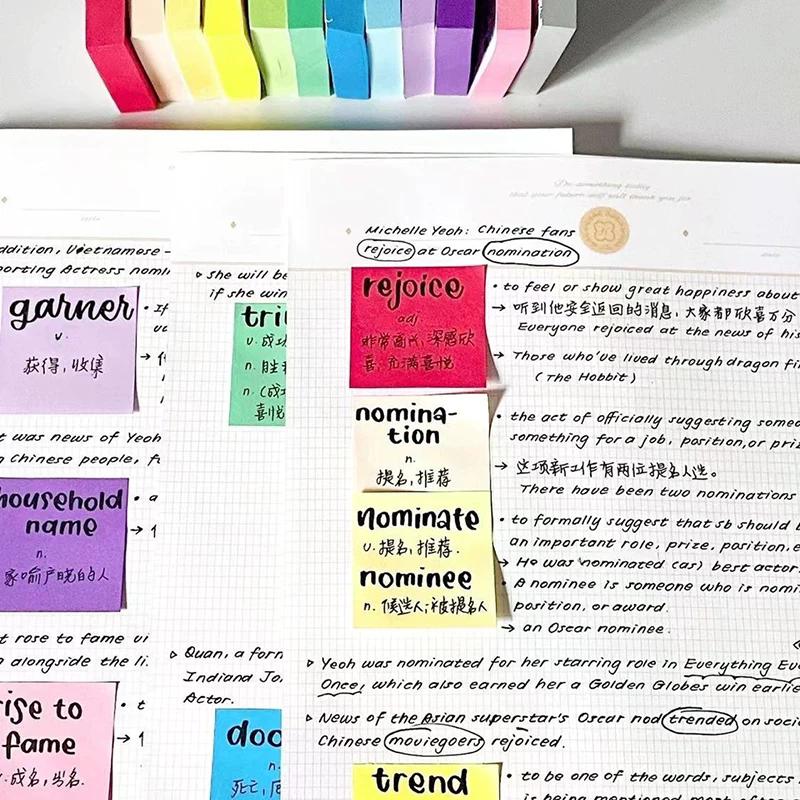 Do something today
that your future self will thank you for
Michelle Yeoh: Chinese fans
rejoice at Oscar nomination
rejoice
adj.
非常高兴,深感欣
喜,充满喜悦
• to feel or show great happiness about
→ 听到他安全返回的消息,大家都欣喜万分
Everyone rejoiced at the news of his
→ Those who've lived through dragon fi
(The Hobbit)
nomina-
tion
n.
提名,推荐
• the act of officially suggesting someo
something for a job, position, or priz
→ 这项新工作有两位提名人选。
There have been two nominations
nominate
v. 提名,推荐.
nominee
n. 候选人;被提名人
• to formally suggest that sb should b
an important role, prize, position, e
→ He was nominated (as) best actor
• A nominee is someone who is nomi
position, or award.
→ an Oscar nominee.
▷ Yeoh was nominated for her starring role in Everything Eve
Once, which also earned her a Golden Globes win earlie
▷ News of the Asian superstar's Oscar nod trended on soci
Chinese moviegoers rejoiced.
trend
• to be one of the words, subjects
is being mentioned most often
▷ She will be
if she win
tri
v. 成功
n. 胜
n. (成功
喜悦
▷ Quan, a forn
Indiana Jo
Actor.
doo
n.
死亡,厄
ddition, Vietnamese-
porting Actress nomi
garner
v.
获得,收集
• If
→
t was news of Yeoh
n Chinese people, f
household
name
n.
家喻户晓的人
• a
→
t rose to fame vi
n alongside the li
rise to
fame
v. 成名,出名.
• t
→